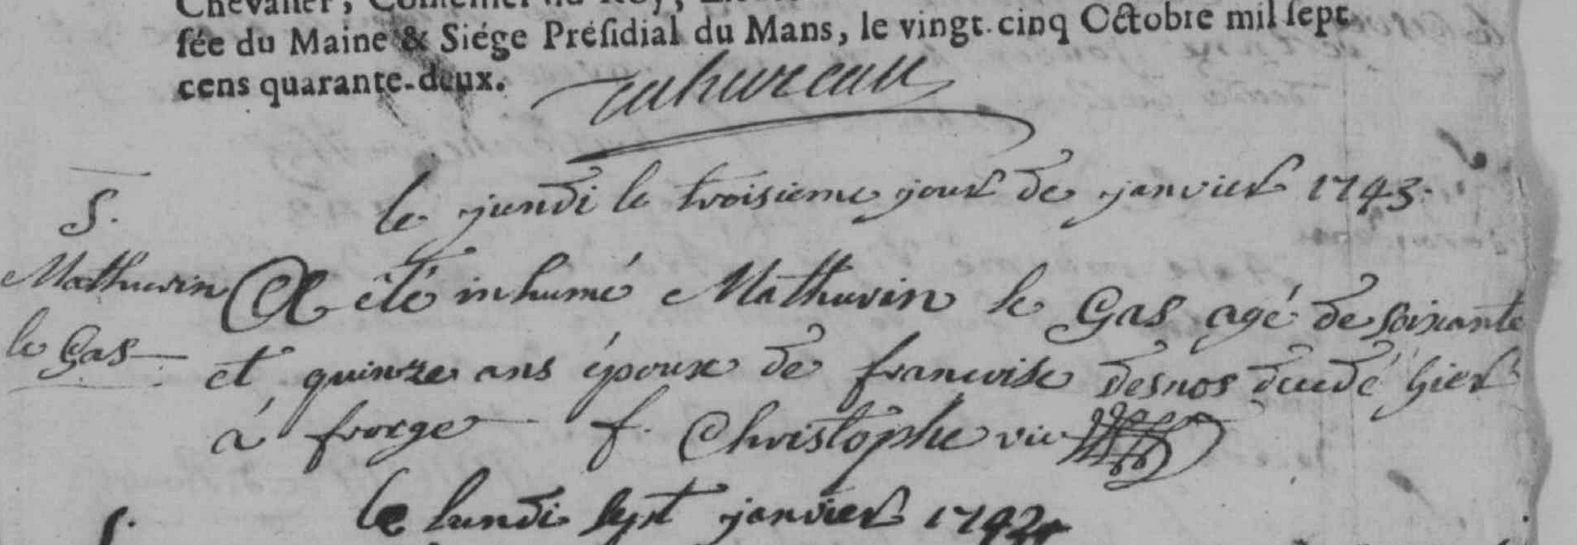 Chevalier, Conseiller du Roy,
sée du Maine & Siége Présidial du Mans, le vingt-cinq Octobre mil sept
cens quarante-deux.
S.
Mathurin
le Gas
le jeudi le troisieme jour de janvier 1743.
A été inhumé Mathurin le Gas agé de soixante
et quinze ans époux de francoise desnos decedé hier
à frorge f. Christophe vic
S.
le lundi sept janvier 1743